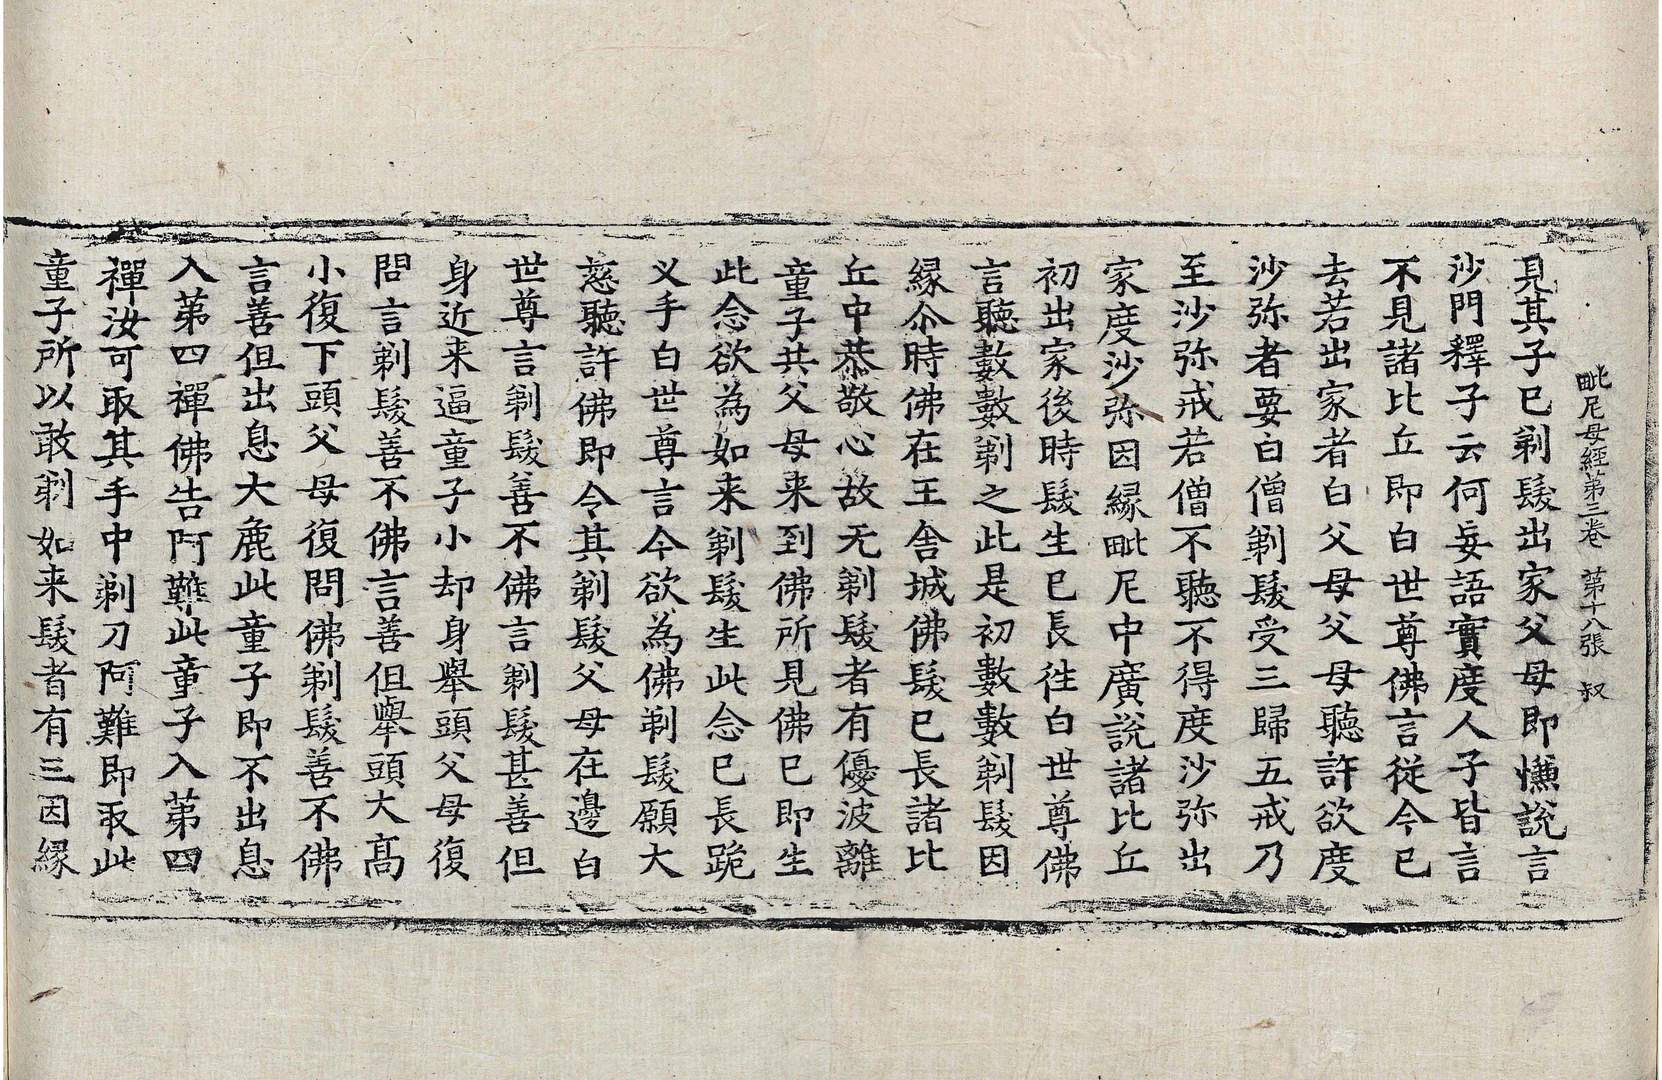 毗尼母經第三卷　第十八張　叔
見其子已剃髮出家父母即慊說言
沙門釋子云何妄語實度人子皆言
不見諸比丘即白世尊佛言従今已
去若出家者白父母父母聽許欲度
沙弥者要白僧剃髮受三歸五戒乃
至沙弥戒若僧不聽不得度沙弥出
家度沙弥因緣毗尼中廣說諸比丘
初出家後時髮生已長徃白世尊佛
言聽數數剃之此是初數數剃髮因
緣尒時佛在王舍城佛髮已長諸比
丘中恭敬心故无剃髮者有優波離
童子共父母来到佛所見佛已即生
此念欲為如来剃髮生此念已長跪
叉手白世尊言今欲為佛剃髮願大
慈聽許佛即令其剃髮父母在邊白
世尊言剃髮善不佛言剃髮甚善但
身近来逼童子小却身舉頭父母復
問言剃髮善不佛言善但舉頭大髙
小復下頭父母復問佛剃髮善不佛
言善但出息大麁此童子即不出息
入第四禪佛告阿難此童子入第四
禪汝可取其手中剃刀阿難即取此
童子所以敢剃如来髮者有三因緣